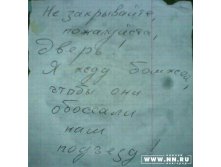 Не закрывайте,
пожалуйста,
дверь!
Я жду бомжей,
чтобы они
обоссали
наш
подъезд!
www.NN.RU